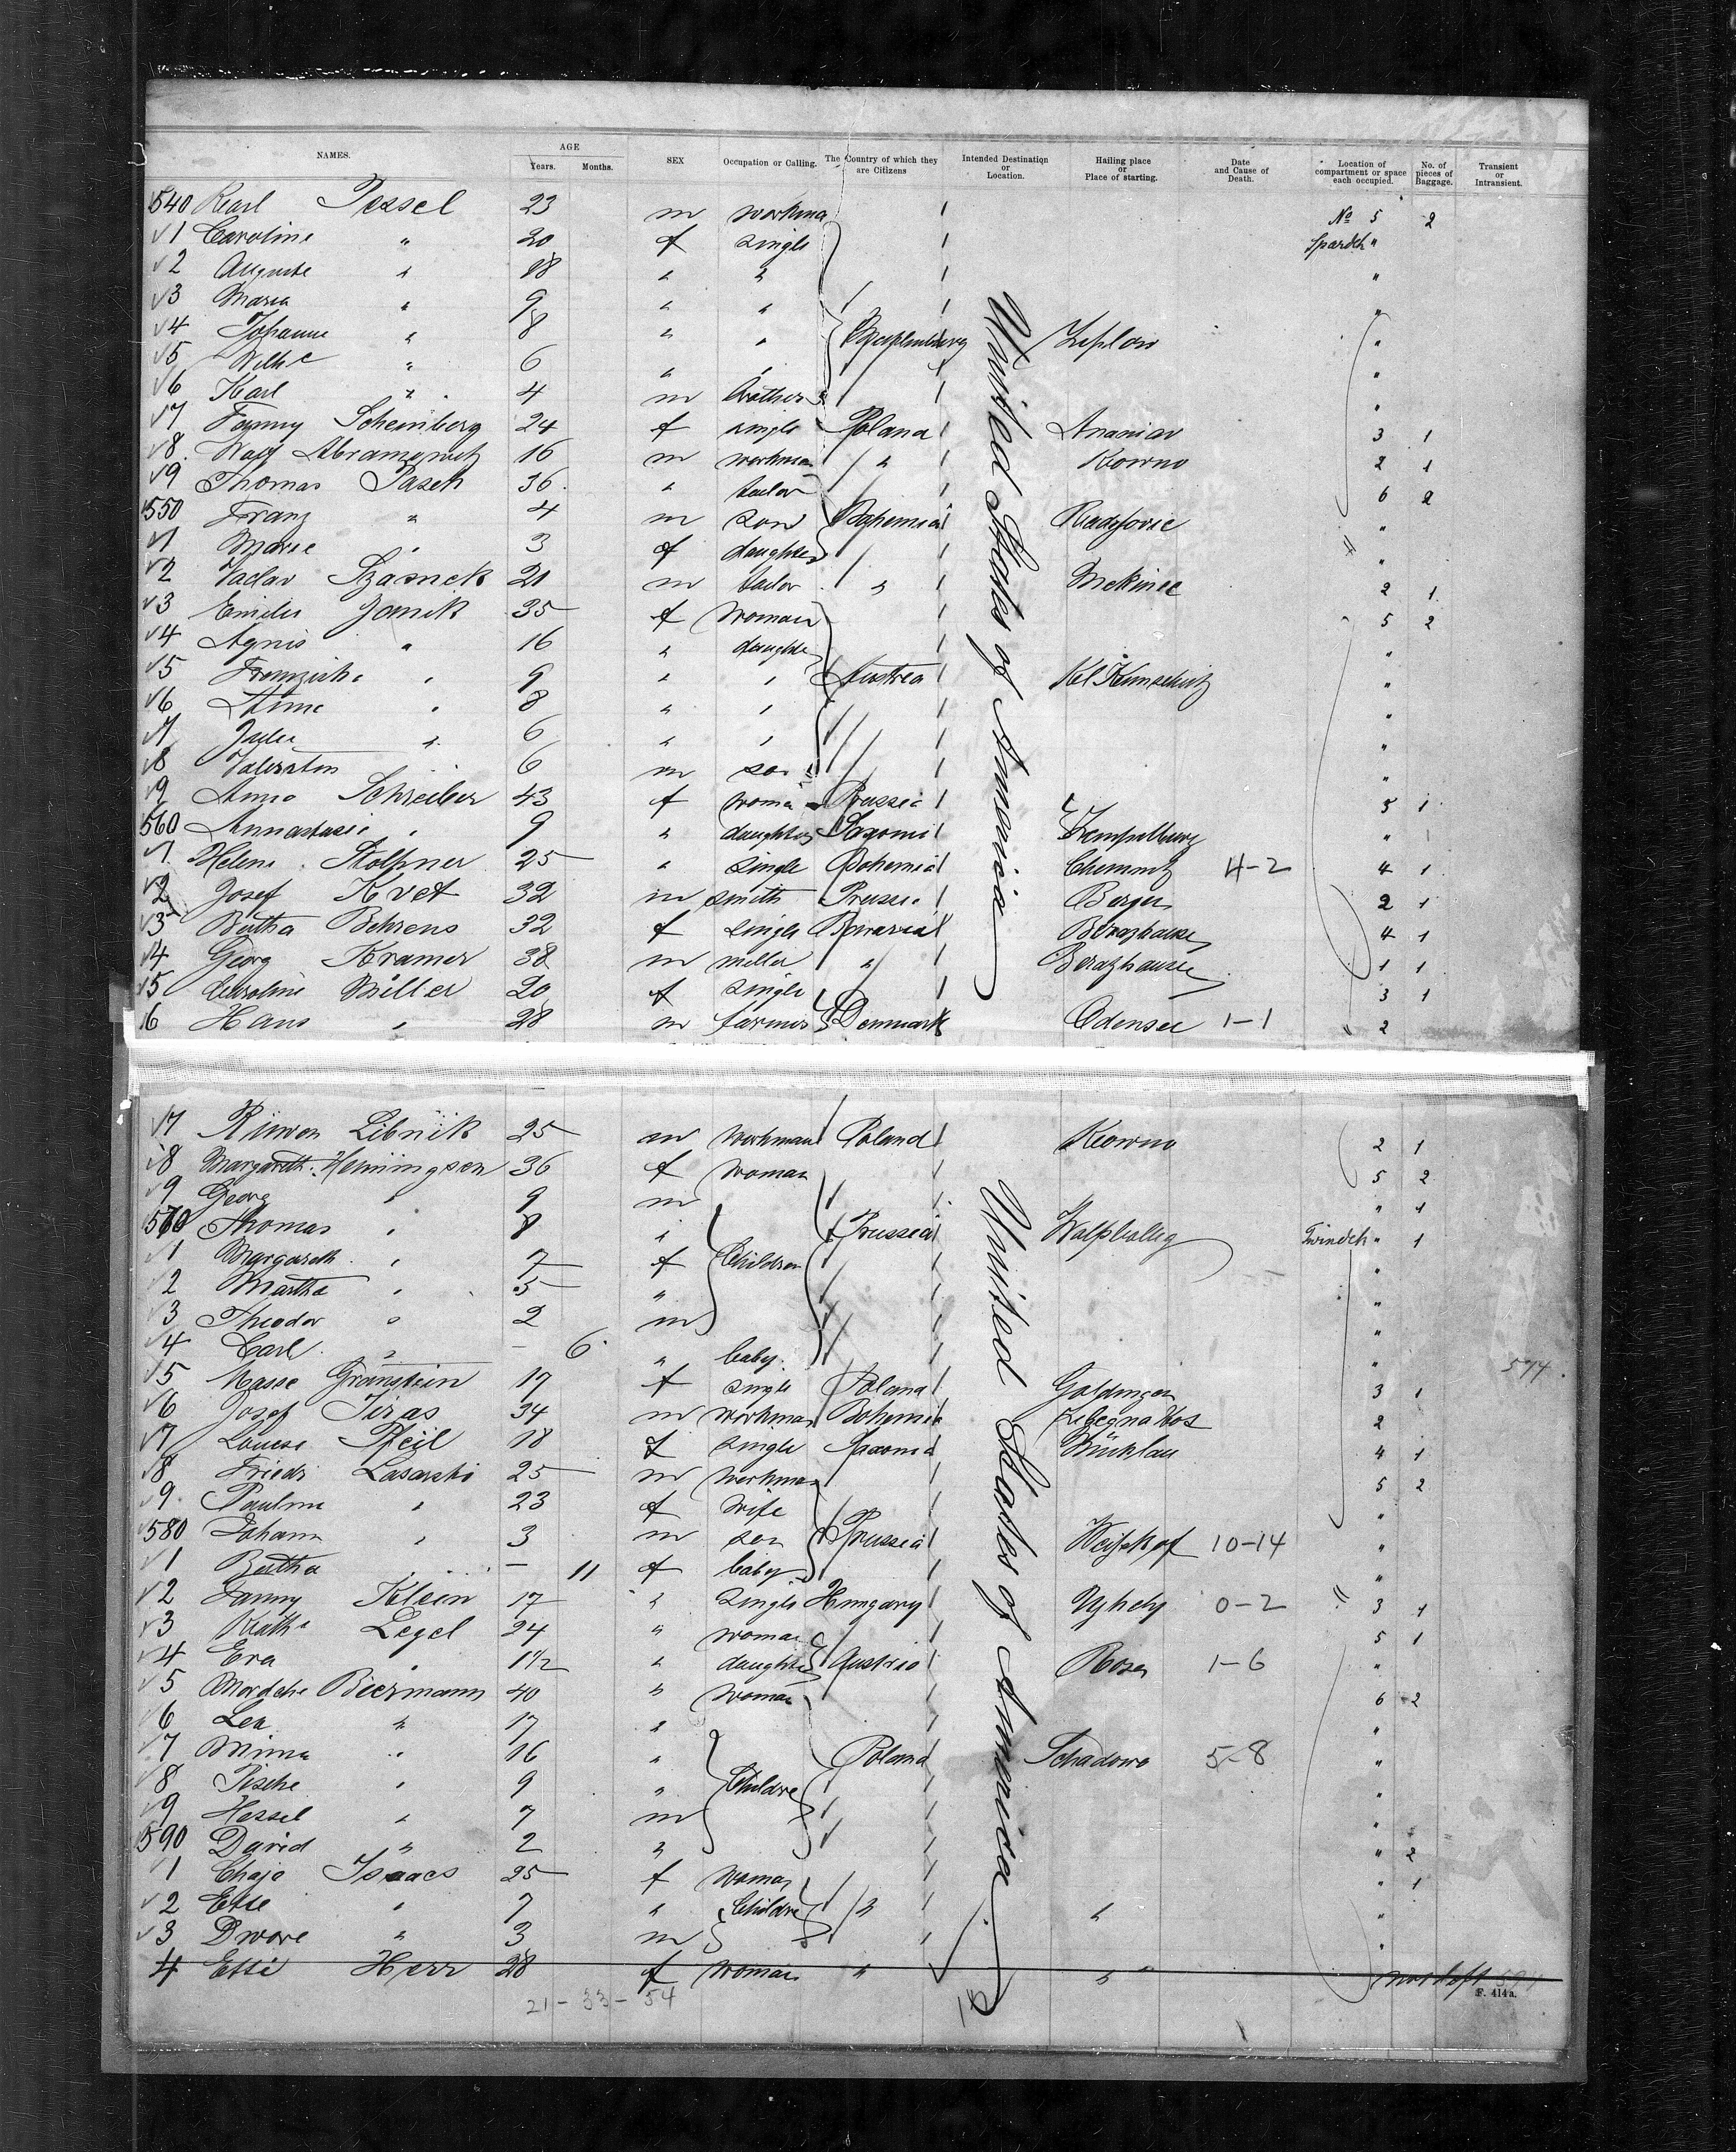 NAMES. AGE Years. Months. SEX Occupation or Calling. The Country of which they are Citizens Intended Destination or Location. Hailing place or Place of starting. Date and Cause of Death. Location of compartment or space each occupied. No. of pieces of Baggage. Transient or Intransient.
540 Karl Pessel 23 m workma No 5 2
1 Caroline " 20 f single Spardek "
2 Auguste " 18 " " "
3 Maria " 9 " " "
4 Johanne " 8 " " Zeplow "
5 Wilhe " 6 " " "
6 Karl " 4 m brother "
7 Fanny Scheinberg 24 f single Poland Ananiav 3 1
8 Abramowitz 16 m workman " Kowno 2 1
9 Thomas Pasek 36 " tailor 6 2
550 Franz " 4 m son Bohemia "
1 Marie " 3 f daughter "
2 Vaclav 21 m tailor " Mekinec 2 1
3 Emilie Janik 35 f woman 5 2
4 Agnis " 16 " daughter "
5 Franziska " 9 " " Austria "
6 Anna " 8 " " "
7 Julie " 6 " " "
8 " 6 m son "
9 Anna Schreiber 43 f woma Prussia 5 1
560 Annastasie " 9 " daughter Saxoni "
1 Helene Stolpner 25 " single Bohemia Chemnitz 4-2 4 1
2 Josef Kvet 32 m smith Prussia Bergen 2 1
3 Bertha Behrens 32 f single Bavaria 4 1
4 Georg Kramer 38 m miller " 1 1
5 Caroline Möller 20 f single 3 1
6 Hans " 28 m farmer Denmark Odensee 1-1 2
United States of America
7 Libnik 25 m workman Poland Kowno 2 1
8 Margareth. Henningsen 36 f woman 5 2
9 Georg " 9 m " 1
570 Thomas " 8 " Prussia Twindek " 1
1 Margareth " 7 f Children "
2 Martha " 5 " "
3 Theodor " 2 m "
4 Carl " - 6 " baby "
594
5 Masse Grünstein 17 f single Poland Goldingen 3 1
6 Josef Jiras 34 m workman Bohemia 2
7 Louise Pfeil 18 f single Saxonia 4 1
8 Friedr Lasarski 25 m workman 5 2
9 Pauline " 23 f wife "
580 Johann " 3 m son Prussia 10-14 "
1 Bertha " - 11 f baby "
2 Fanny Klein 17 " single Hungary Ujhely 0-2 3 1
3 Käthe Legel 24 " woman 5 1
4 Eva " 1½ " daughter Austria 1-6 "
5 Mordche Biermann 40 " woman 6 2
6 Lea " 17 " "
7 Minna " 16 " Poland Schadowo 5-8 "
8 Pische " 9 " Childre "
9 Hessel " 7 m "
590 David " 2 " " 2
1 Chaje Isaacs 25 f woman " 1
2 Ette " 7 " Childre " " "
3 Dwore " 3 m "
4 Etti Herr 28 f woman " " not left
United States of America
21-33-54
F. 414a.